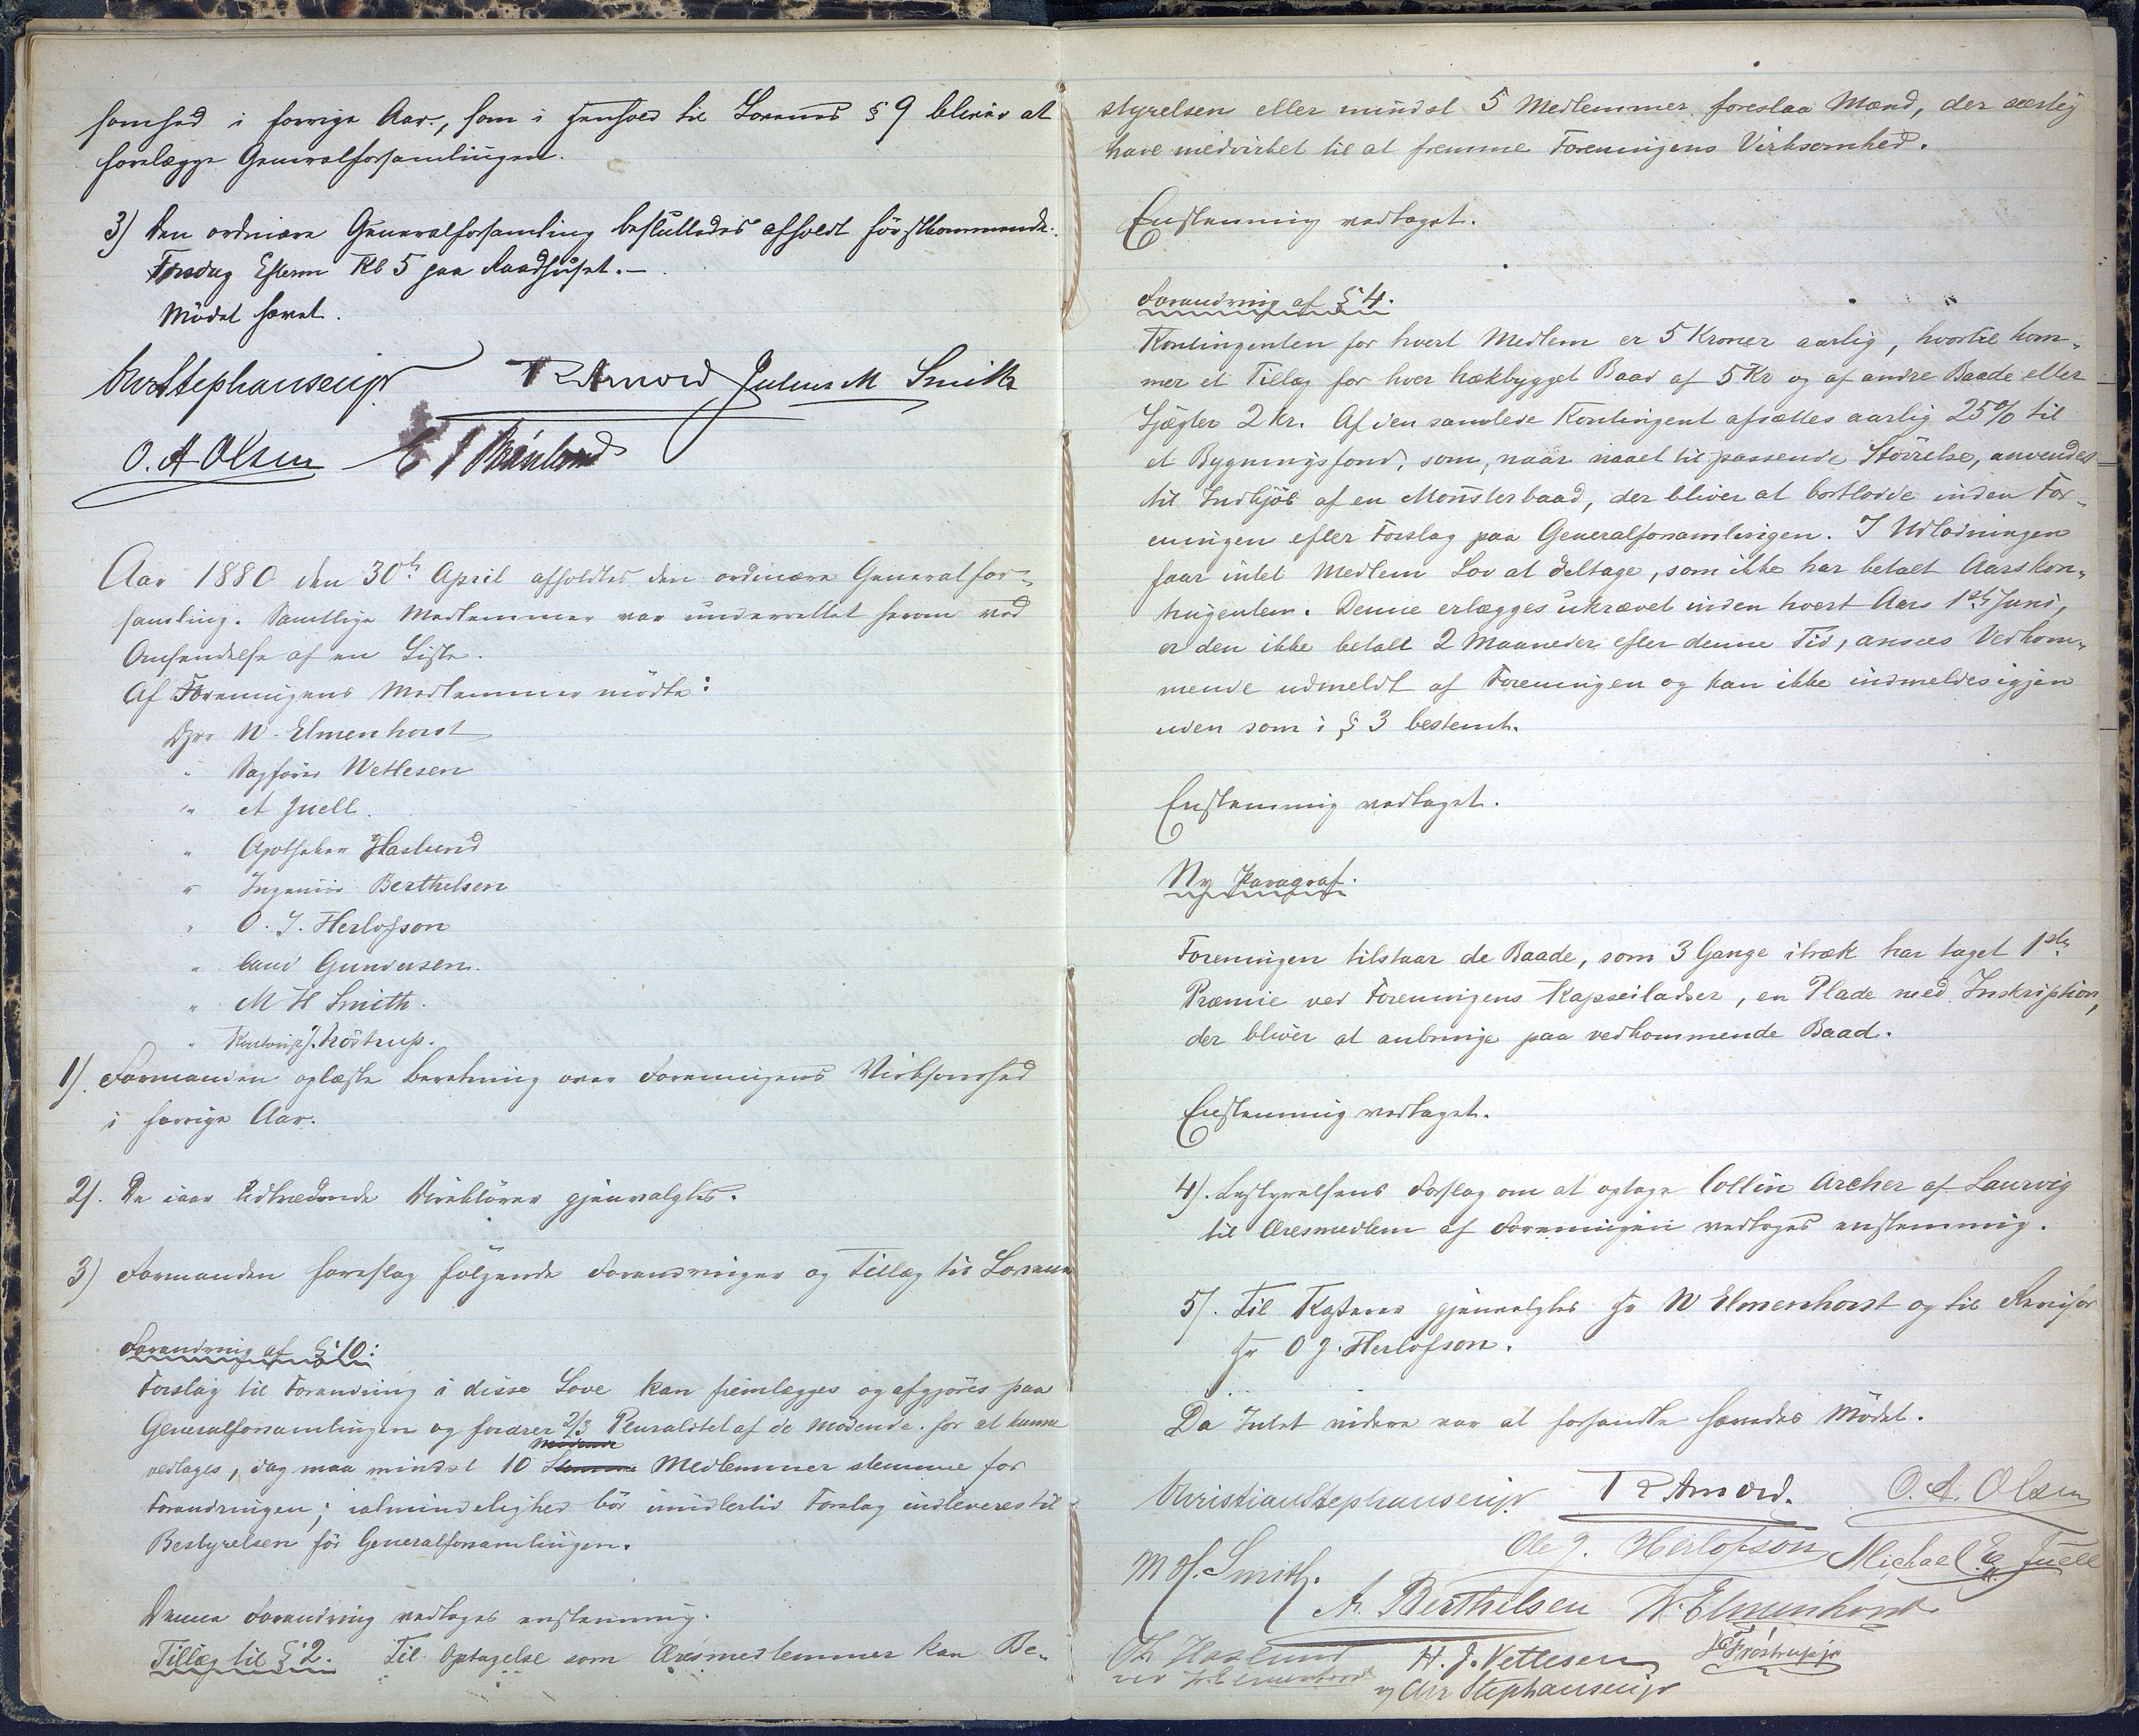 somhed i forrige Aar, som i Henhold til Lovens § 9 bliver at
forelægge Generalforsamlingen.
3) Den ordinære Generalforsamling besluttedes afholdt förstkommende
Tirsdag Efterm Kl 5 paa Raadhuset.—
Mödet hævet.
Chr Stephansen jr T R Arnord Julius M Smith
O. A Olsen
Aar 1880 den 30te April afholdtes den ordinære Generalfor-
samling. Samtlige Medlemmer var underrettet herom ved
Omsendelse af en Liste.
Af Foreningens Medlemmer mödte:
Dhrr W. Elmenhorst
" Sagförer Wetlesen
" A Juell.
" Apotheker Haslund
" Ingeniör Berthelsen
" O. J. Herlofson
" Cand Gundersen.
" M H Smith.
" J. Fröstrup.
1). Formanden oplæste Beretning over Foreningens Virksomhed
i forrige Aar.
2). De iaar udtrædende Direktörer gjenvalgtes.
3) Formanden foreslog fölgende Forandringer og Tillæg til Lovene
Forandring af § 10:
Forslag til Forandring i disse Love kan fremlægges og afgjöres paa
Generalforsamlingen og fordrer 2/3 Pluralitet af de Mödende for at kunne
mödende
vedtages, dog maa mindst 10 Stemme Medlemmer stemme for
Forandringen; ialmindelighed bör imidlertid Forslag indleveres til
Bestyrelsen för Generalforsamlingen.
Denne Forandring vedtoges enstemmig.
Tillæg til § 2. Til Optagelse som Æresmedlemmer kan Be-
styrelsen eller mindst 5 Medlemmer foreslaa Mænd, der særlig
have medvirket til at fremme Foreningens Virksomhed.
Enstemmig vedtaget.
Forandring af § 4.
Kontingenten for hvert Medlem er 5 Kroner aarlig, hvortil kom-
mer et Tillæg for hver hækbygget Baad af 5 Kr og af andre Baade eller
Sjægter 2 Kr. Af den samlede Kontingent afsættes aarlig 25% til
et Bygningsfond, som, naar naaet til passende Störrelse, anvendes
til Indkjöb af en Mönsterbaad, der bliver at bortlodde inden For-
eningen efter Forslag paa Generalforsamlingen. I Udlodningen
faar intet Medlem Lov at deltage, som ikke har betalt Aarskon-
tingenten. Denne erlægges ukrævet inden hvert Aars 1ste Juni,
er den ikke betalt 2 Maaneder efter denne Tid, ansees Vedkom-
mende udmeldt af Foreningen og kan ikke indmeldes igjen
uden som i § 3 bestemt.
Enstemmig vedtaget.
Ny Paragraf.
Foreningen tilstaar de Baade, som 3 Gange itræk har taget 1ste
Præmie ved Foreningens Kapseiladser, en Plade med Inskription,
der bliver at anbringe paa vedkommende Baad.
Enstemmig vedtaget.
4). Bestyrelsens Forslag om at optage Collin Archer af Laurvig
til Æresmedlem af Foreningen vedtoges enstemmig.
5). Til Kasserer gjenvalgtes Hr W Elmenhorst og til Revisor
Hr O J. Herlofson.
Da Intet videre var at forhandle hævedes Mödet.
Christian Stephansen jr T R Arnord. O. A. Olsen
M H. Smith. Ole J. Herlofson Michael Juell
A. Berthelsen W. Elmenhorst
Th Haslund H. J. Vettesen Fröstrup jr
ved W. Elmenhorst v/ Chr Stephansen jr